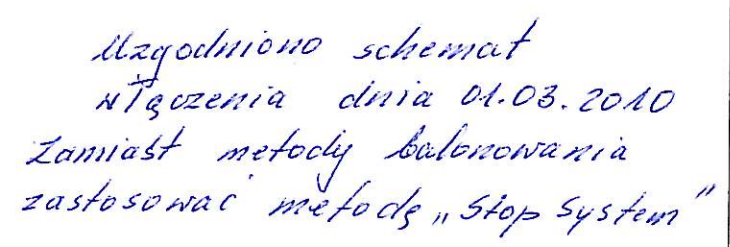 Uzgodniono schemat
włączenia dnia 01.03.2010
Zamiast metody balonowania
zastosować metodę „Stop System”